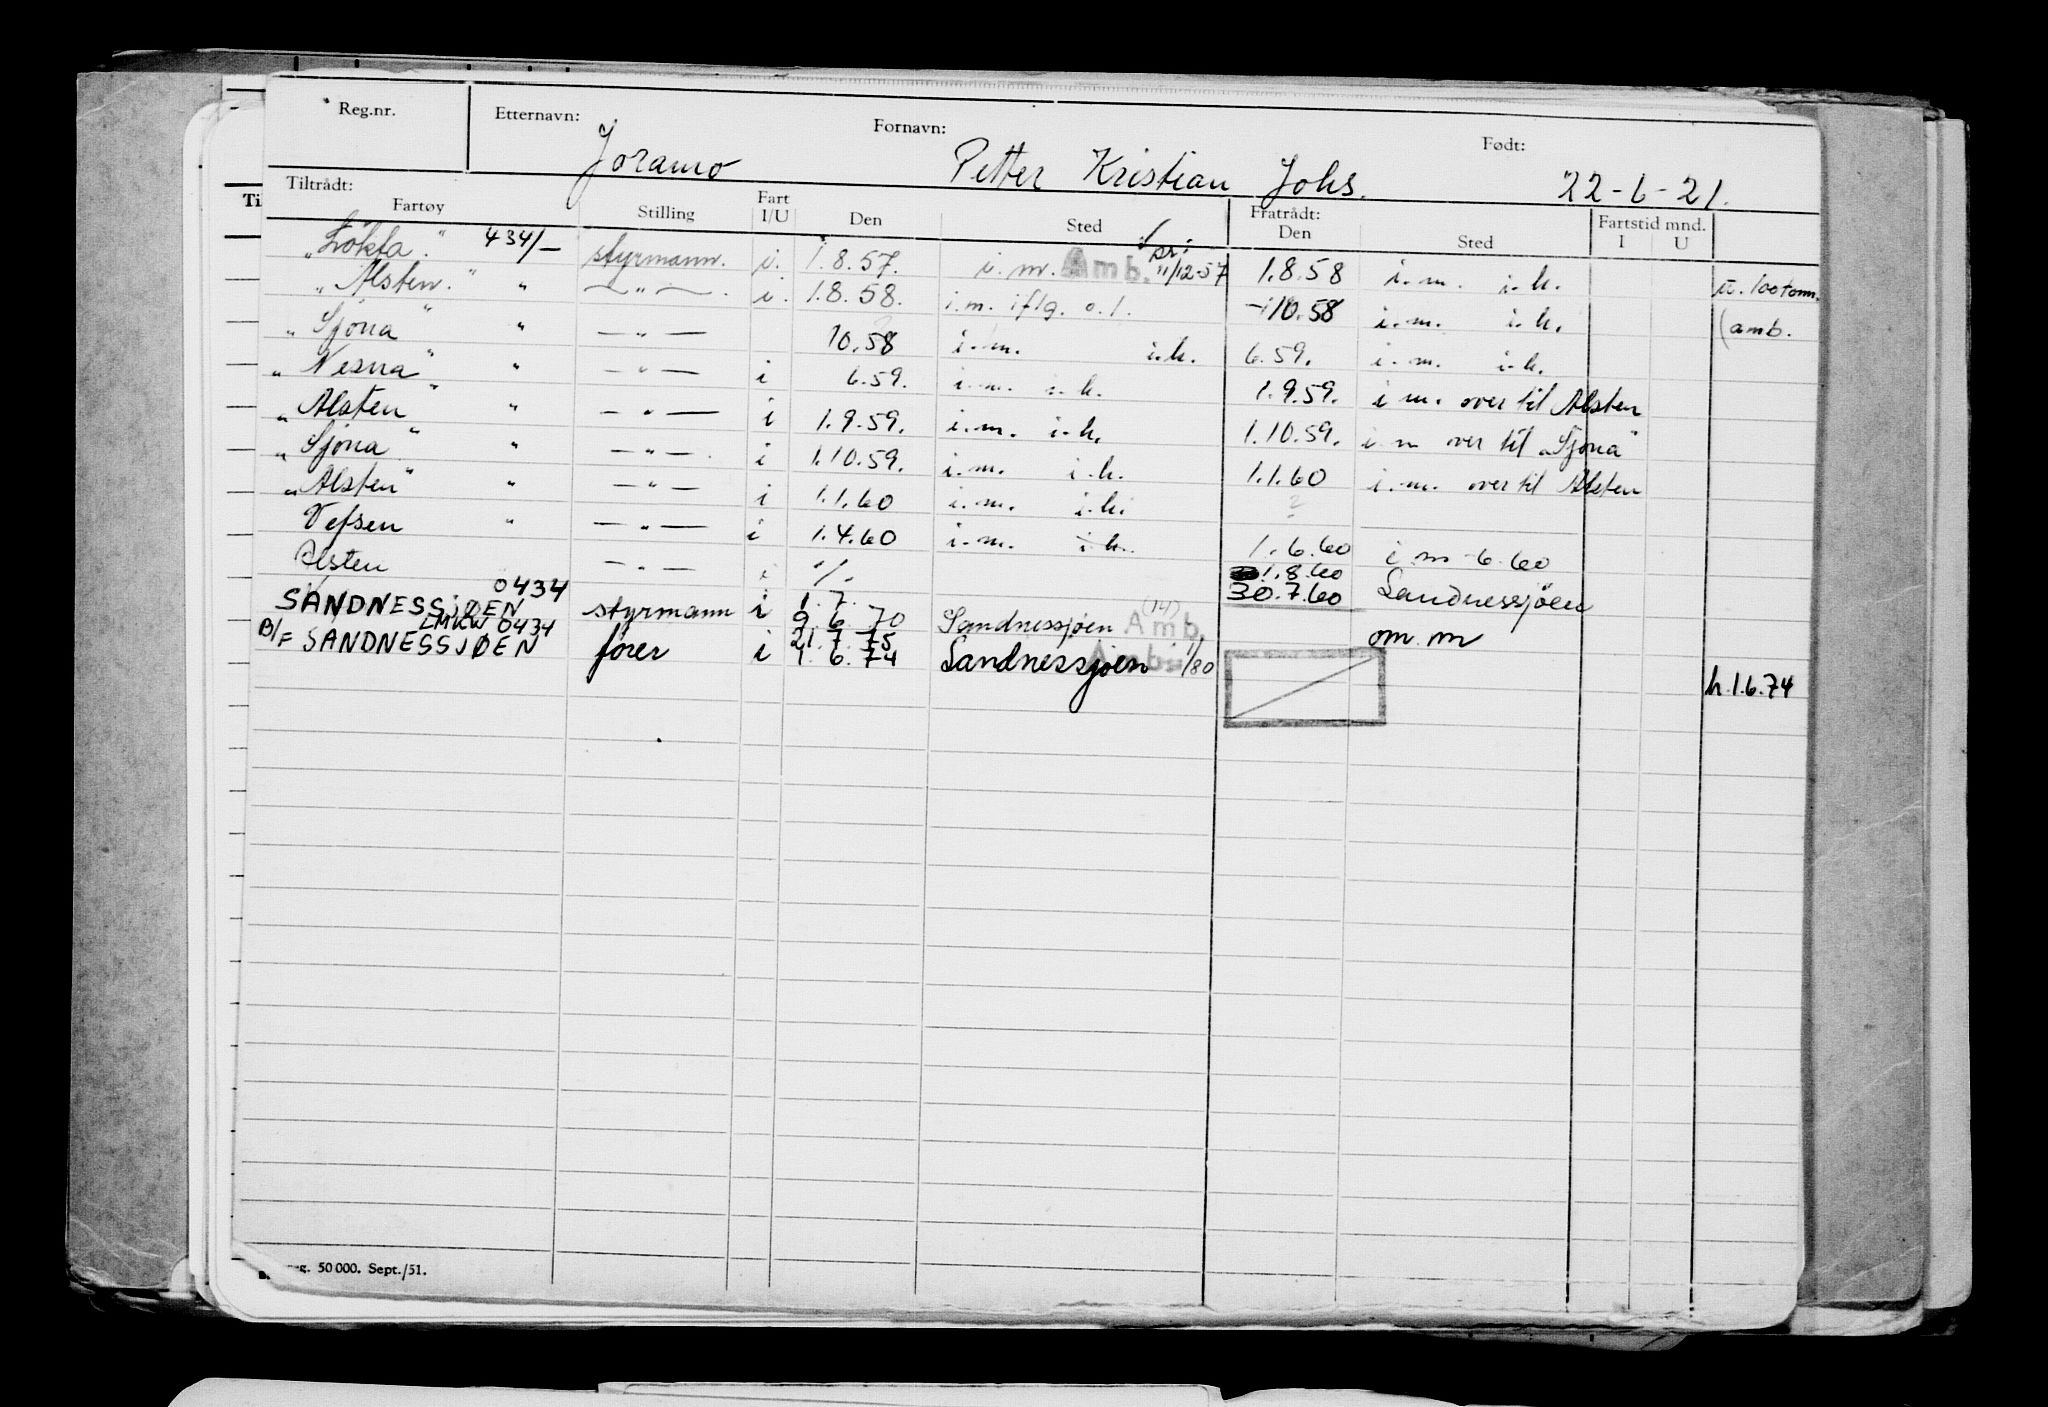 Reg.nr. Etternavn: Fornavn: Født:
Joramo Petter Kristian Johs. 22-6-21.
Tiltrådt: Fart Fratrådt: Fartstid mnd.
Fartøy Stilling I/U Den Sted Den Sted I U
"Løkta." 434/- styrmann. i. 1.8.57. i.m. Amb. 11/12-57 1.8.58 i.m. i.h. u. 100 tonn.
"Alsten." " — " — i. 1.8.58. i.m. iflg. o.l. -10.58 i.m. i.h. (amb.
"Sjona" " — " — 10.58 i.m. i.h. 6.59. i.m. i.h.
"Nesna" " — " — i 6.59. i.m. i.h. 1.9.59. i m. over til Alsten
"Alsten" " — " — i 1.9.59. i.m. i.h. 1.10.59. i m over til "Sjona"
"Sjona" " — " — i 1.10.59. i.m. i.h. 1.1.60 i.m. over til Alsten
"Alsten" " — " — i 1.1.60 i.m. i.h. ?
Vefsen " — " — i 1.4.60 i.m. i.h. 1.6.60 i m 6.60
Alsten — " — i 1.8.60
SANDNESSJØEN 0434 styrmann i 1.7. 30.7.60 Sandnessjøen
9.6.70 Sandnessjøen Amb. (14)
B/F SANDNESSJØEN LMKW 0434 fører i 21.7.75 om.m
1.6.74 Sandnessjøen Amb. 1/80 h.1.6.74
eg. 50 000. Sept./51.